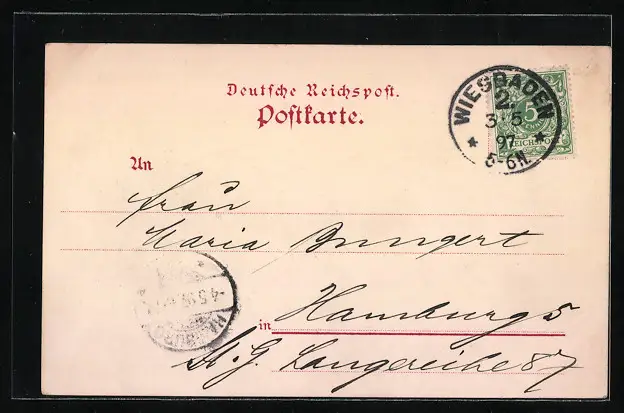 Deutsche Reichspost.
Postkarte.
WIESBADEN
2.
3/5
97
5-6N.
5
REICHSPOST
An
Frau
Maria Bungert
in Hamburg 5
St. G. Langereihe 87
HAMBURG
4.5.